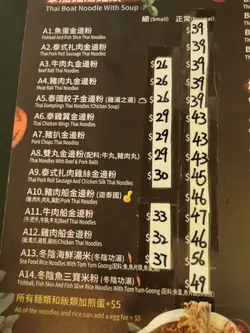 Thai Boat Noodle With Soup
細(Small) 正常(Normal)
A1.魚蛋金邊粉 $39
Fishball And Fish Slive Thai Noodles
A2.泰式扎肉金邊粉 $39
Thai Pork Roll Sausage Thai Noodles
A3.牛肉丸金邊粉 $26 $39
Beef Ball Thai Noodles
A4.豬肉丸金邊粉 $26 $39
Meat Pork Ball Thai Noodles
A5.泰國餃子金邊粉(雞湯之選) $26 $39
Thai Dumplings Thai Noodles (Chicken Soup)
A6.泰雞翼金邊粉 $29 $43
Thai Chicken Wings Thai Noodles
A7.豬扒金邊粉 $29 $43
Pork Chops Thai Noodles
A8.雙丸金邊粉(配料:牛丸,豬肉丸) $29 $43
Thai Noodles With Beef & Pork Balls
A9.泰式扎肉雞絲金邊粉 $30 $45
Thai Pork Roll Sausage And Chicken Silk Thai Noodles
A10.豬肉船金邊粉(遊泰國) $46
A11.牛肉船金邊粉 $33 $47
A12.雞肉船金邊粉 $32 $46
A13.冬陰海鮮湯米(冬陰功湯) $37 $56
Sea Food Rice Noodles With Tom Yum Goong
A14.冬陰魚三寶米粉(冬陰功湯) $49
Fishball, Fish Skin And Fish Slive Rice Noodles With Tom Yum Goong
所有麵類和飯類加煎蛋+$5
All of the noodles and rice can add a egg for + $5